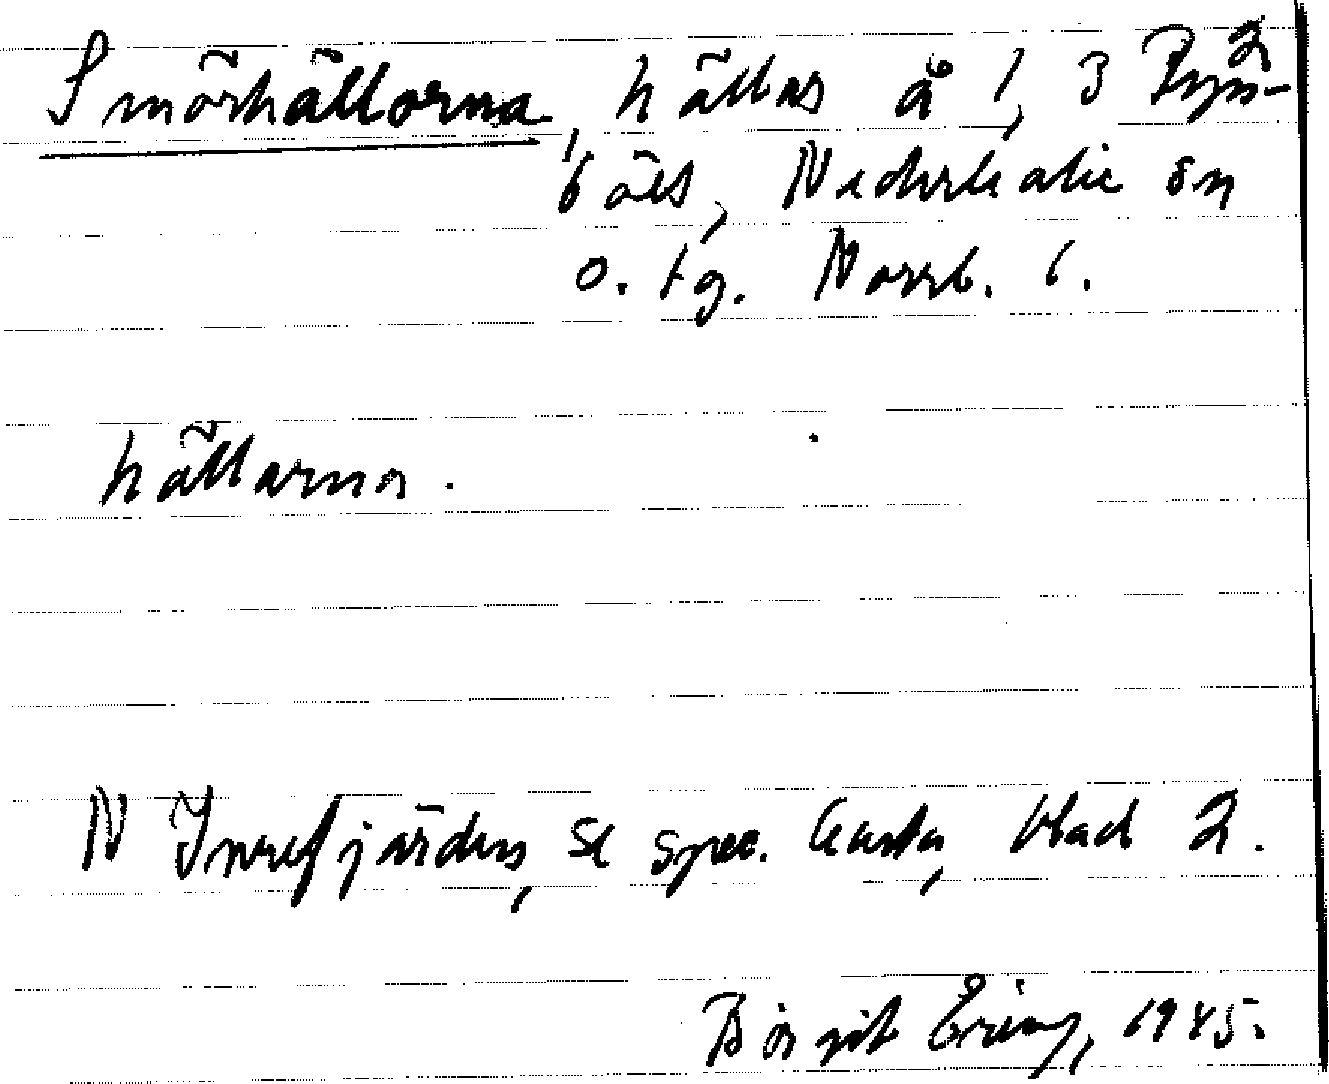 Smörhällorna, hällar å 1, 3 Ryss-
bält, Nederkalix sn
o. tg. Norrb. l.
hällarna.
N Innerfjärden, se spec. karta, blad 2.
Birgit Ering, 1945.